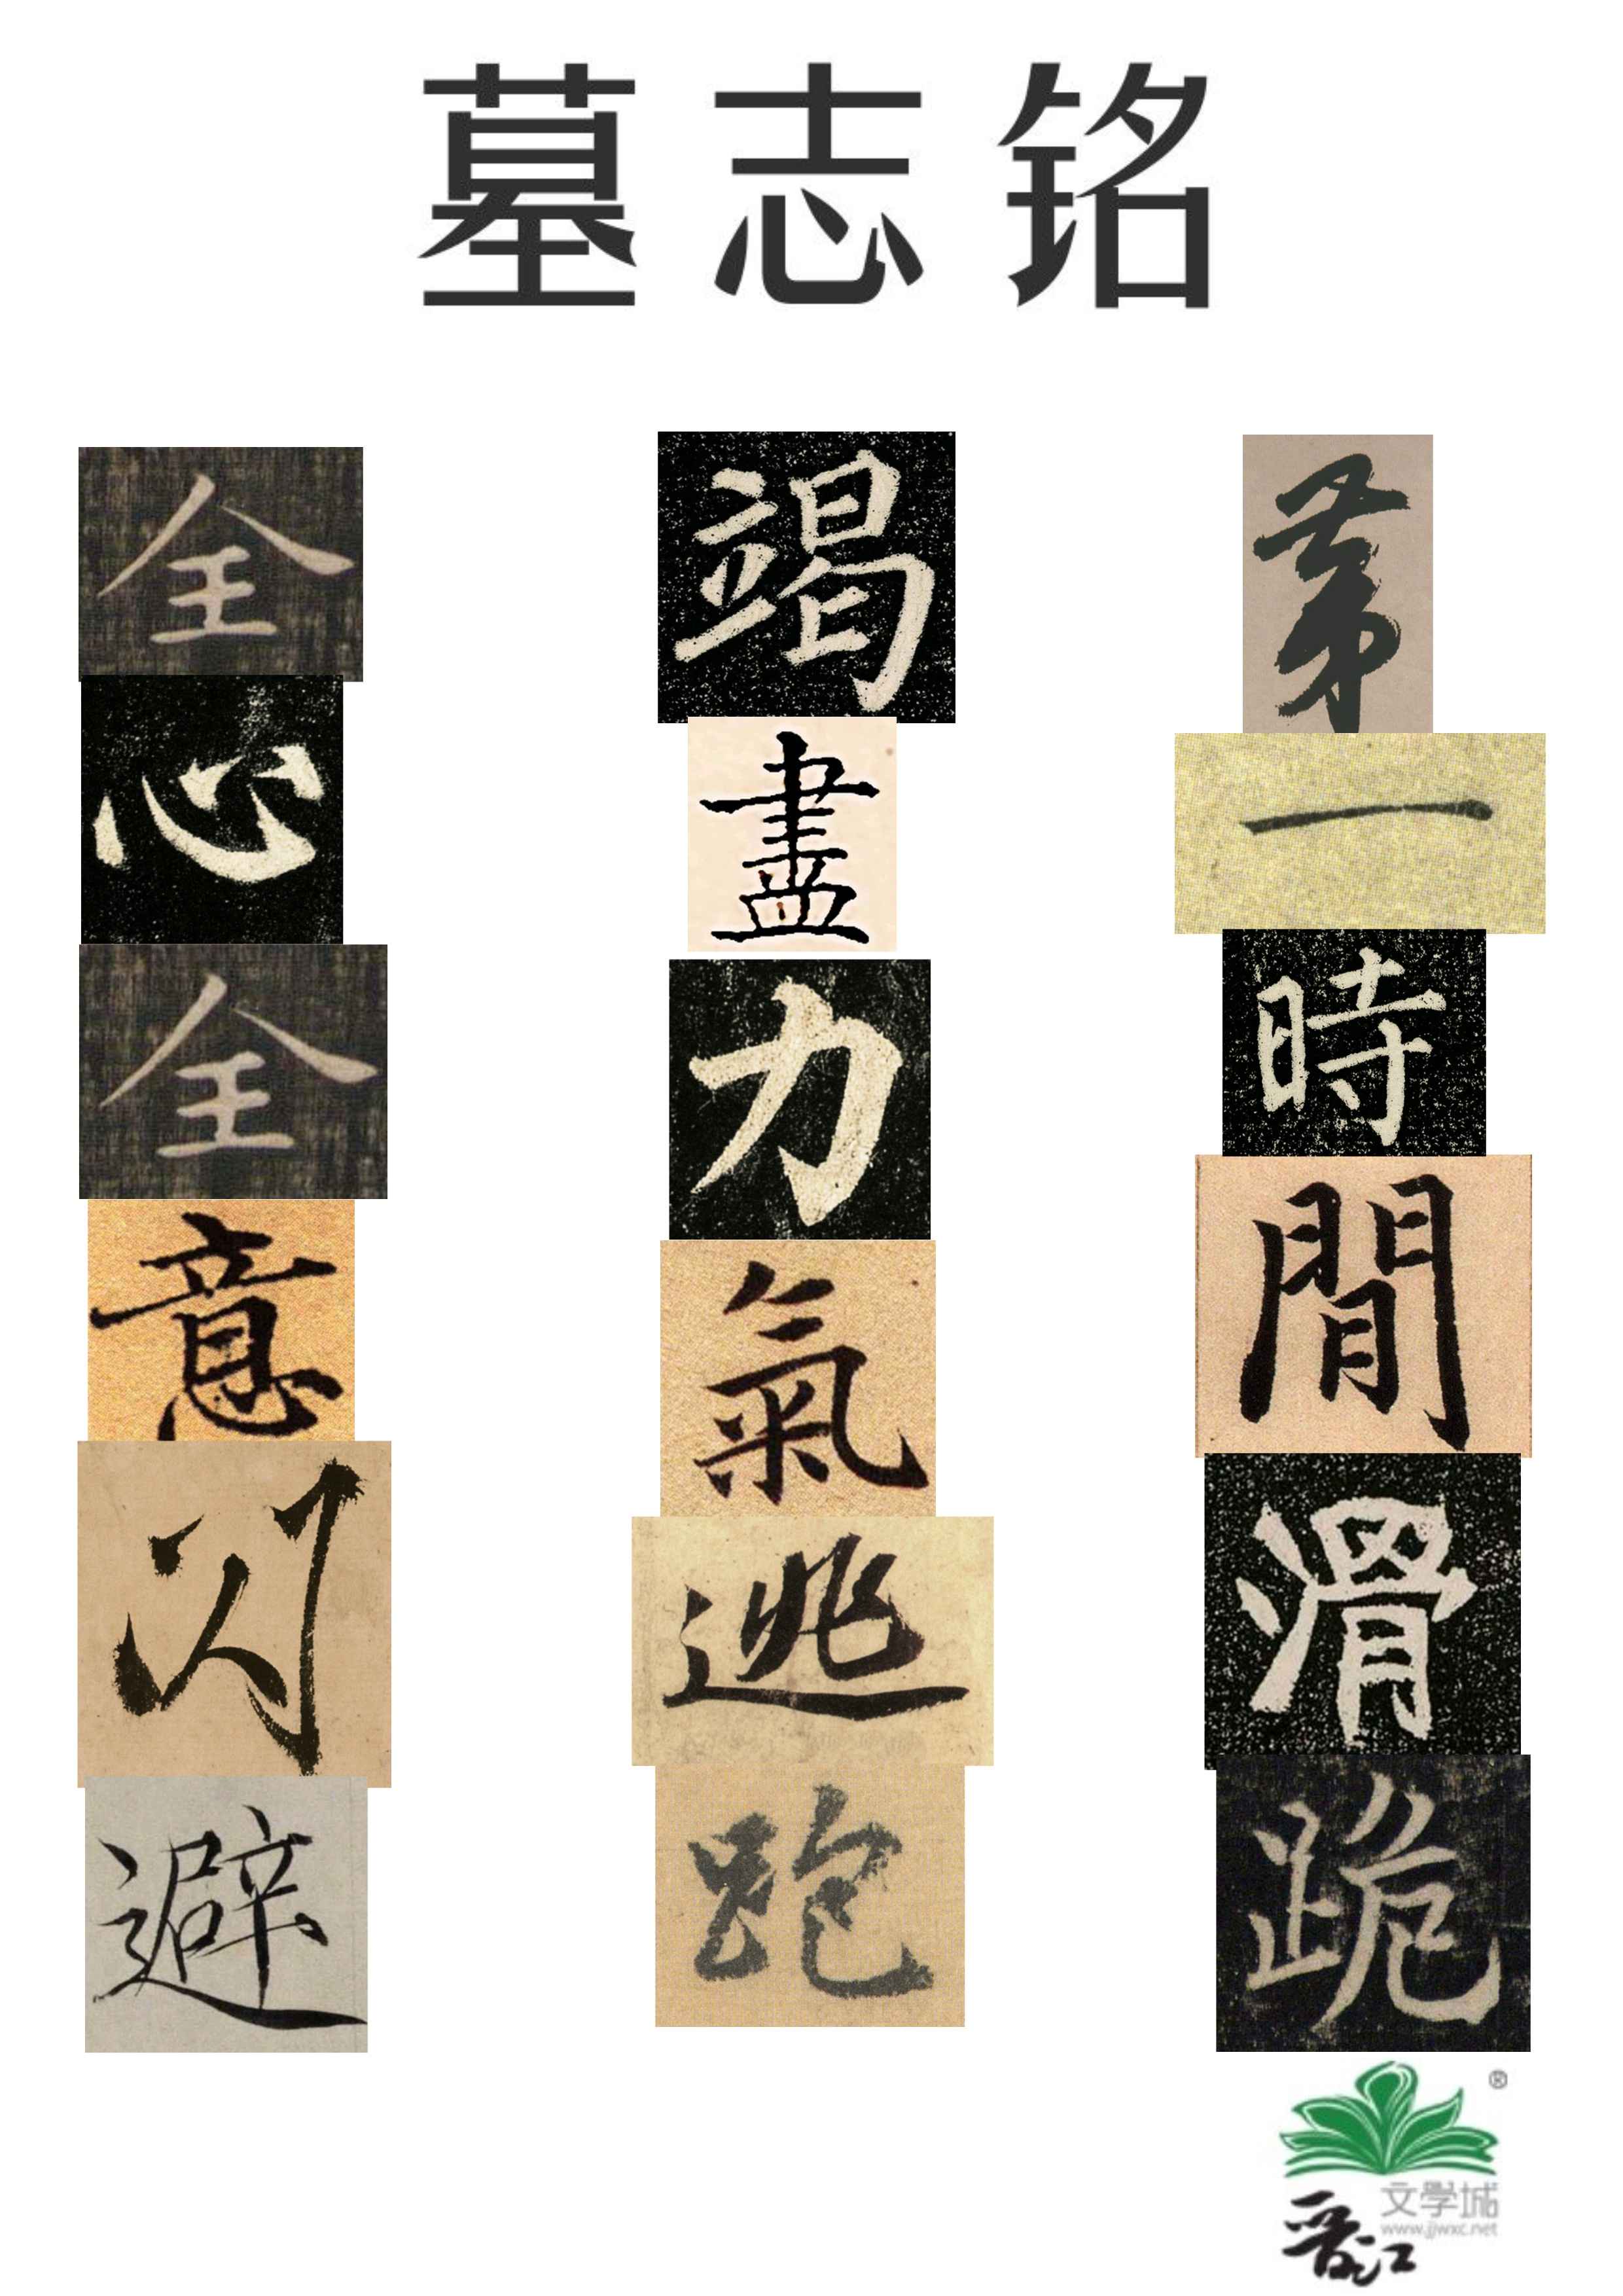 墓志铭
全心全意閃避
竭盡力氣逃跑
第一時間滑跪
®
文學城
www.jjwxc.net
晋江